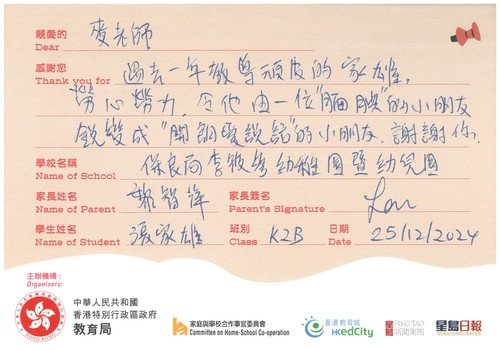 親愛的 麥老師
Dear
感謝您 過去一年教導頑皮的家雄,
Thank you for
勞心勞力, 令他由一位“腼腆”的小朋友
銳變成“開朗愛說話”的小朋友. 謝謝你.
學校名稱 保良局李筱參幼稚園暨幼兒園
Name of School
家長姓名 智鋒 家長簽名
Name of Parent Parent's Signature
學生姓名 張家雄 班別 K2B 日期 25/12/2024
Name of Student Class Date
主辦機構:
Organisers:
中華人民共和國
香港特別行政區政府
教育局
家庭與學校合作事宜委員會
Committee on Home-School Co-operation
香港教育城
HKedCity
星島新聞集團
SING TAO
星島日報